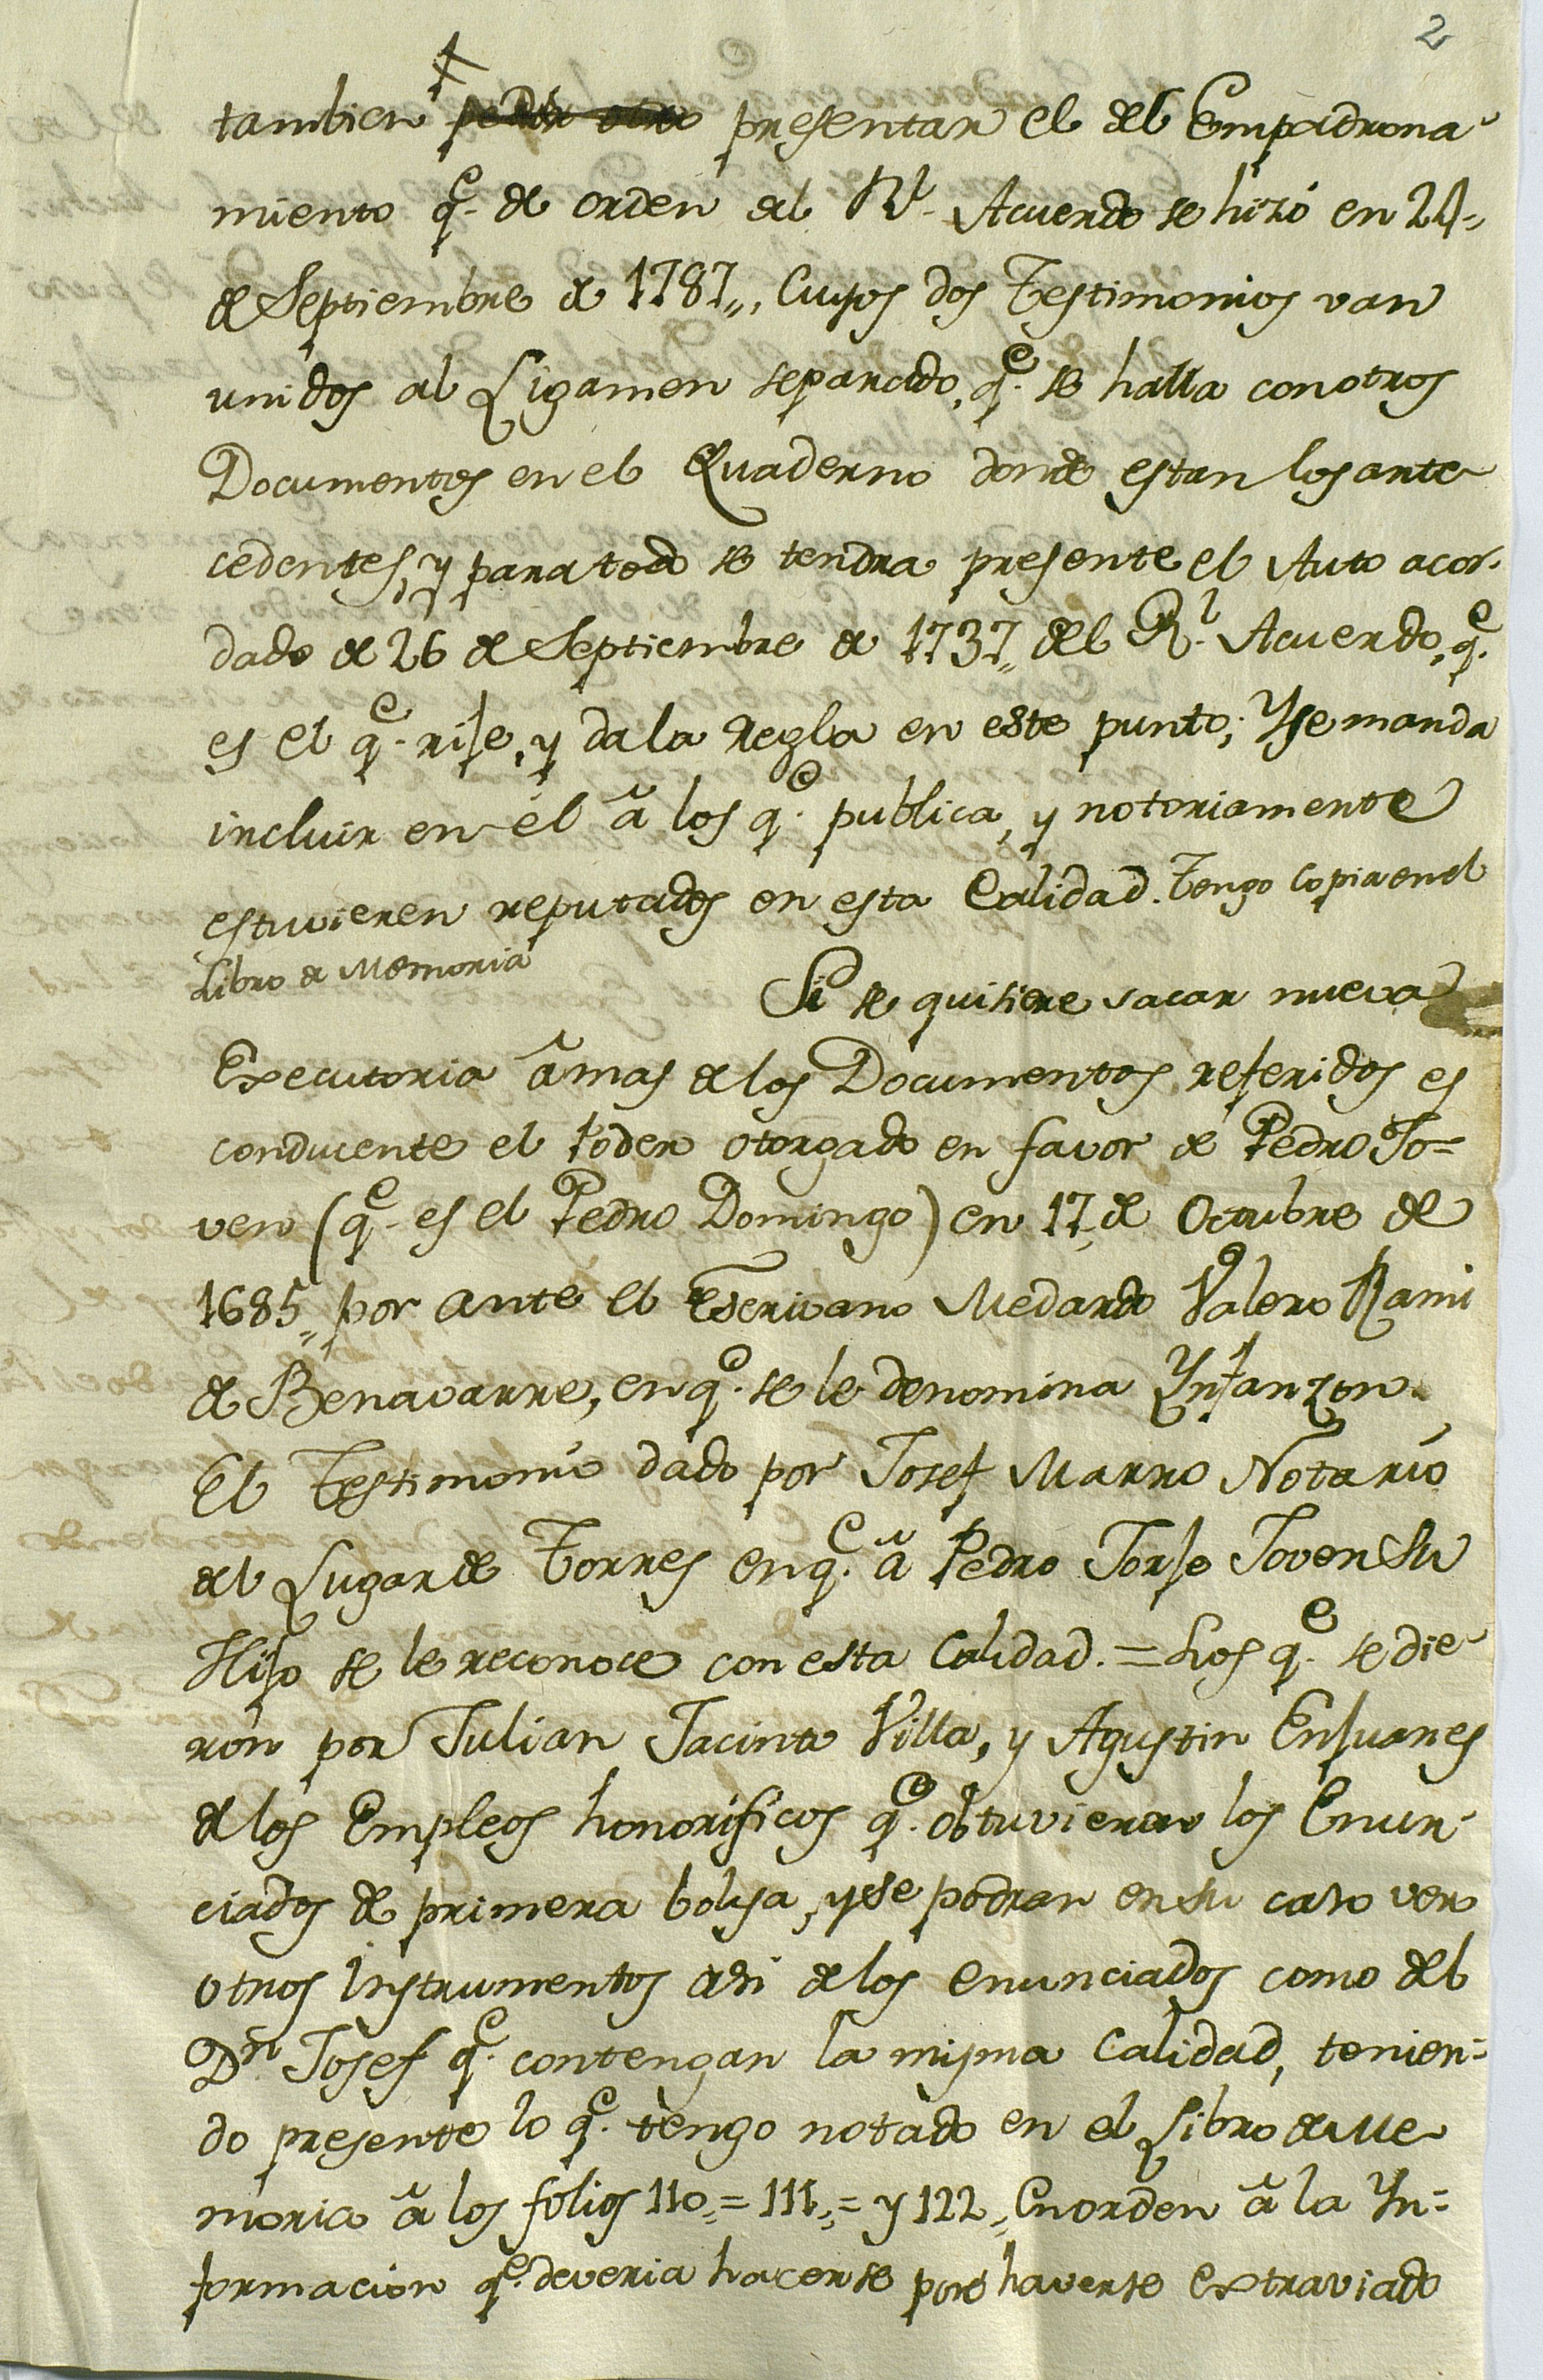 2
tambien presentar el del Empadrona-
miento q.e de orden del R.l Acuerdo se hizo en 24,,
de Septiembre de 1787,,, Cuyos dos Testimonios van
unidos al Ligamen separado, q.e se halla con otros
Documentos en el Quaderno donde estan los ante
cedentes, y para todo se tendra presente el Auto acor-
dado de 26 de Septiembre de 1737,, del R.l Acuerdo, q.e
es el q.e rije, y da la Regla en este punto; Y se manda
incluir en él â los q.e publica, y notoriamente
estuvieren reputados en esta Calidad. Tengo Copia en el
Libro de Memoria
Si se quisiere sacar nueva
Executoria âmas de los Documentos referidos es
conducente el Poder otorgado en favor de Pedro Jo=
ven (q.e es el Pedro Domingo) en 17,, de Octubre de
1685,, por ante el Escrivano Medardo Valero Rami
de Benavarre, en q.e se le denomina Ynfanzon.
El Testimonio dado por Josef Marro Notario
del Lugar de Torres en q.e â Pedro Jorje Joven su
Hijo se le reconoce con esta Calidad. = Los q.e se die-
ron por Julian Jacinto Villa, y Agustin Enjuanes
de los Empleos honorificos q.e obtuvieron los Enun-
ciados de primera bolsa, y se podran en su caso ver
otros Instrumentos asi de los enunciados como del
D.n Josef q.e contengan la misma Calidad, tenien=
do presente lo q.e tengo notado en el Libro de Me
moria â los folios 110,,= 111,,= y 122,, En orden â la Yn=
formacion q.e deveria hacerse por haverse extraviado